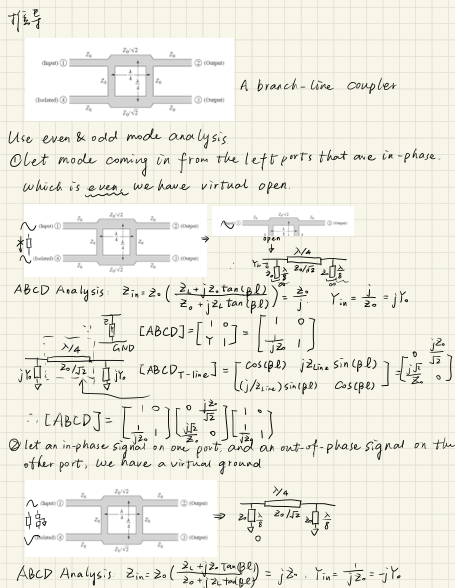 推导
Z₀ Z₀/√2 Z₀
(Input) ① ② (Output)
Z₀ λ/4 Z₀
(Isolated) ④ ③ (Output)
Z₀ Z₀/√2 Z₀
A branch-line coupler
Use even & odd mode analysis
① Let mode coming in from the left ports that are in-phase.
which is even, we have virtual open.
Z₀ Z₀/√2 Z₀
(Input) ① ② (Output)
(Isolated) ④ ③ (Output)
Z₀ Z₀/√2 Z₀
⇒
open
λ/4
Z₀/√2
λ/8 λ/8
ABCD Analysis: Zin = Z₀ ( (ZL + jZ₀ tan(βl)) / (Z₀ + jZL tan(βl)) ) = Z₀/j Yin = j/Z₀ = jY₀
GND
[ABCD] = [1 0; Y 1] =
λ/4
jY₀ Z₀/√2 jY₀
[ABCD T-line] = [cos(βl) jZLine sin(βl); (j/ZLine) sin(βl) cos(βl)] =
∴ [ABCD] =
② let an in-phase signal on one port, and an out-of-phase signal on the
other port, we have a virtual ground
Z₀ Z₀/√2 Z₀
(Input) ① ② (Output)
(Isolated) ④ ③ (Output)
Z₀ Z₀/√2 Z₀
⇒
λ/4
Z₀/√2
Z₀ λ/8 Z₀ λ/8
ABCD Analysis: Zin = Z₀ ( (ZL + jZ₀ tan(βl)) / (Z₀ + jZL tan(βl)) ) = jZ₀. Yin = = -jY₀